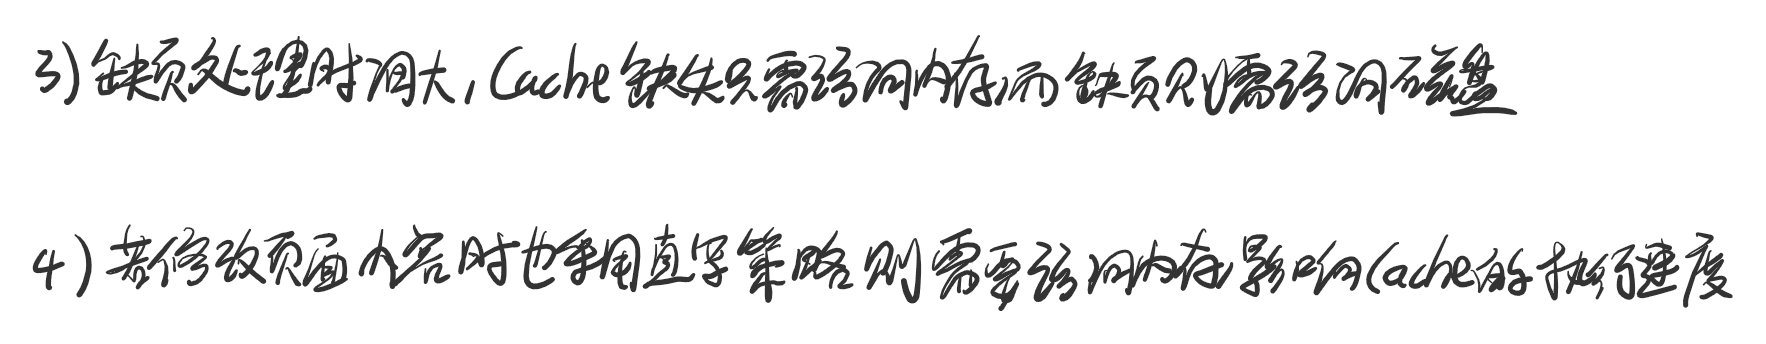 3)缺页处理时间大,Cache缺失只需访问内存,而缺页则需访问磁盘
4)若修改页面内容时也采用直写策略则需要访问内存,影响Cache的执行速度